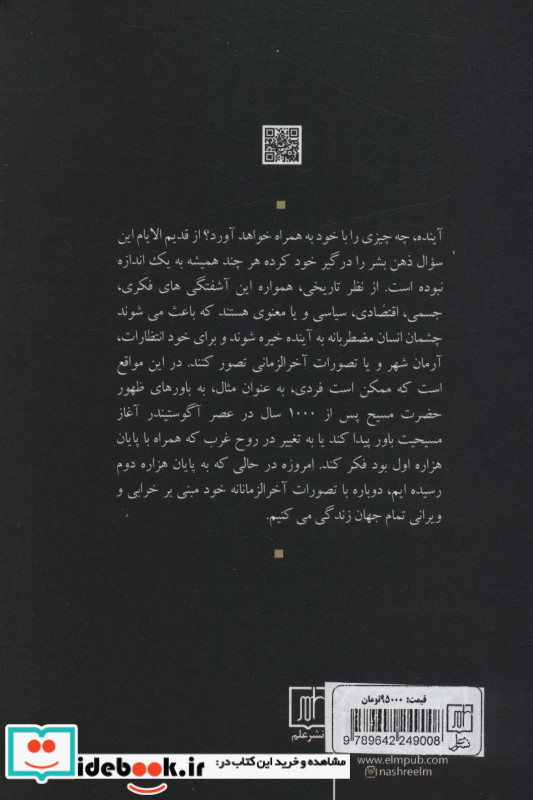 آینده، چه چیزی را با خود به همراه خواهد آورد؟ از قدیم الایام این
سؤال ذهن بشر را درگیر خود کرده هر چند همیشه به یک اندازه
نبوده است. از نظر تاریخی، همواره این آشفتگی های فکری،
جسمی، اقتصادی، سیاسی و یا معنوی هستند که باعث می شوند
چشمان انسان مضطربانه به آینده خیره شوند و برای خود انتظارات،
آرمان شهر و یا تصورات آخرالزمانی تصور کنند. در این مواقع
است که ممکن است فردی، به عنوان مثال، به باورهای ظهور
حضرت مسیح پس از ۱۰۰۰ سال در عصر آگوستیندر آغاز
مسیحیت باور پیدا کند یا به تغییر در روح غرب که همراه با پایان
هزاره اول بود فکر کند. امروزه در حالی که به پایان هزاره دوم
رسیده ایم، دوباره با تصورات آخرالزمانانه خود مبنی بر خرابی و
ویرانی تمام جهان زندگی می کنیم.
قیمت: ۹۵۰۰۰تومان
نشر علم
9 789642 249008
نشر علم
www.elmpub.com
nashreelm
مشاهده و خرید این کتاب در:
idebook.ir